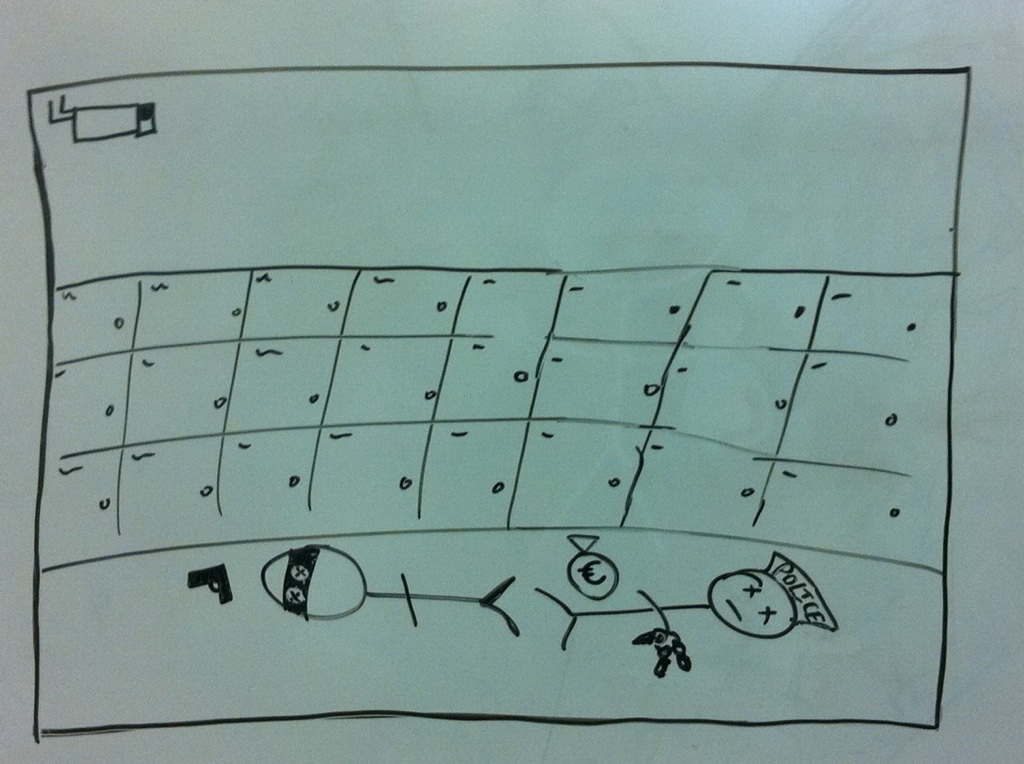 €
POLICE